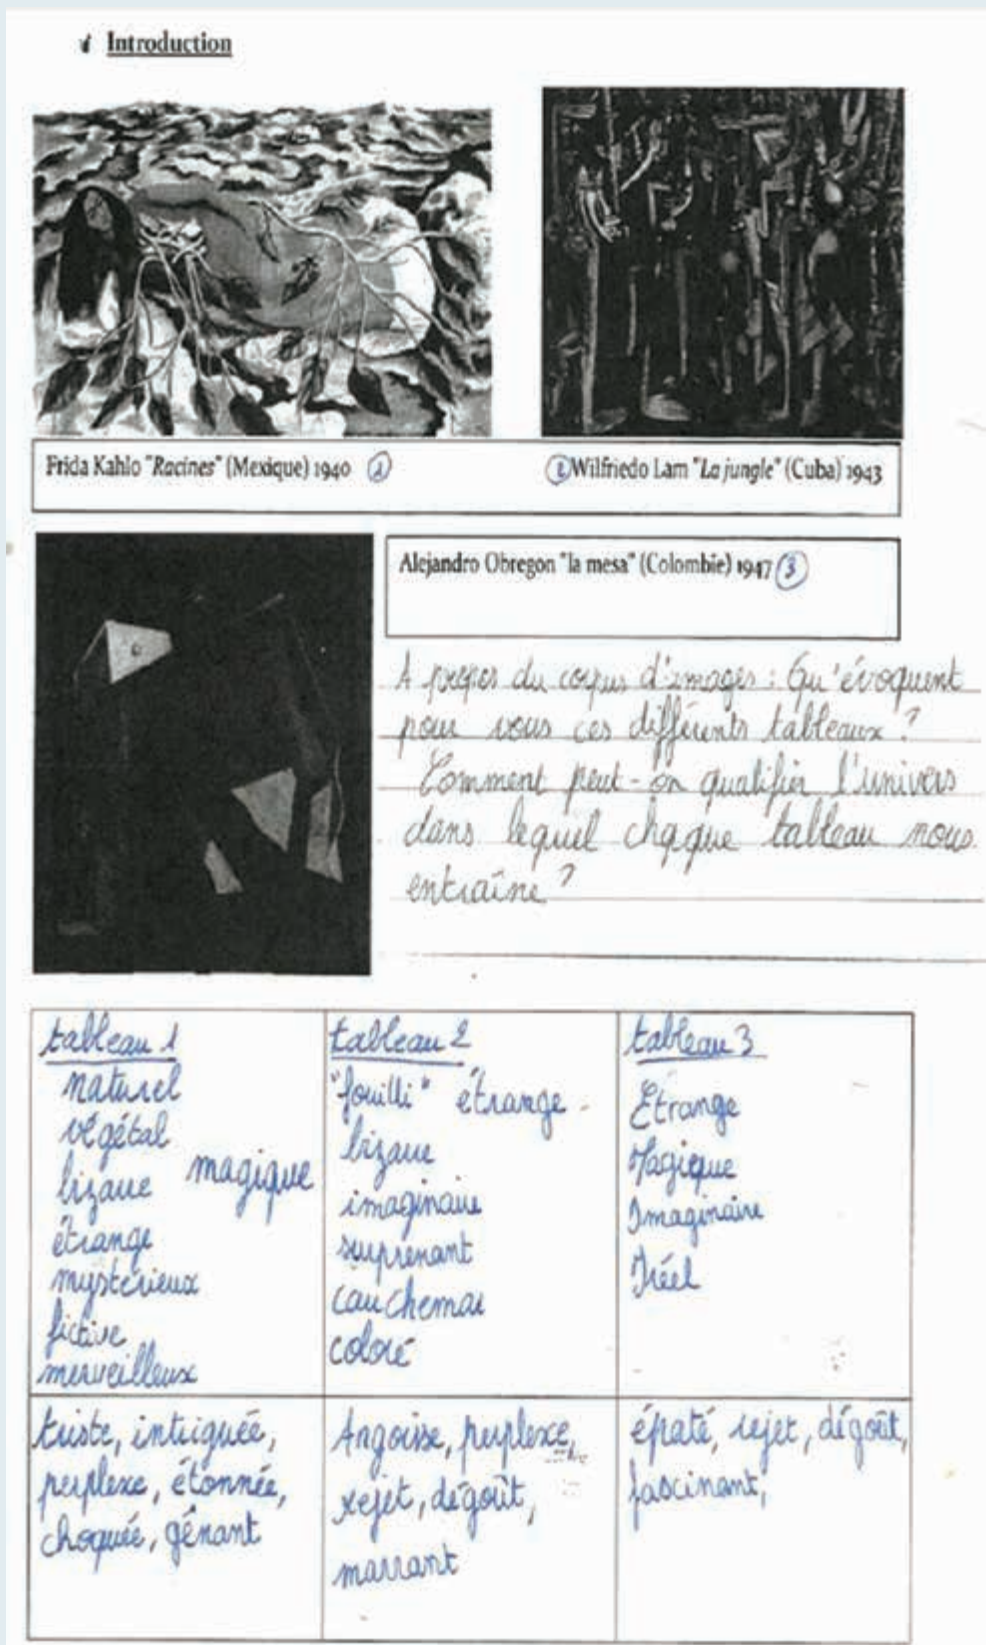 Introduction
Frida Kahlo "Racines" (Mexique) 1940 1
2 Wilfriedo Lam "La jungle" (Cuba) 1943
Alejandro Obregon "la mesa" (Colombie) 1947 3
A propos du corpus d'images : Qu'évoquent
pour vous ces différents tableaux ?
Comment peut-on qualifier l'univers
dans lequel chaque tableau nous
entraîne ?
tableau 1
naturel
végétal
bizarre magique
étrange
mystérieux
fictive
merveilleux
tableau 2
"fouilli" étrange
bizarre
imaginaire
surprenant
cauchemar
coloré
tableau 3
Etrange
Magique
Imaginaire
Iréel
triste, intriguée,
perplexe, étonnée,
choquée, gênant
Angoisse, perplexe,
rejet, dégoût,
marrant
épaté, rejet, dégoût,
fascinant,